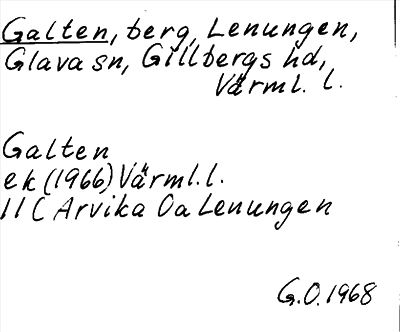 Galten, berg, Lenungen,
Glava sn, Gillbergs hd,
Värml. l.
Galten
ek (1966) Värml. l.
11 C Arvika Oa Lenungen
G.O. 1968